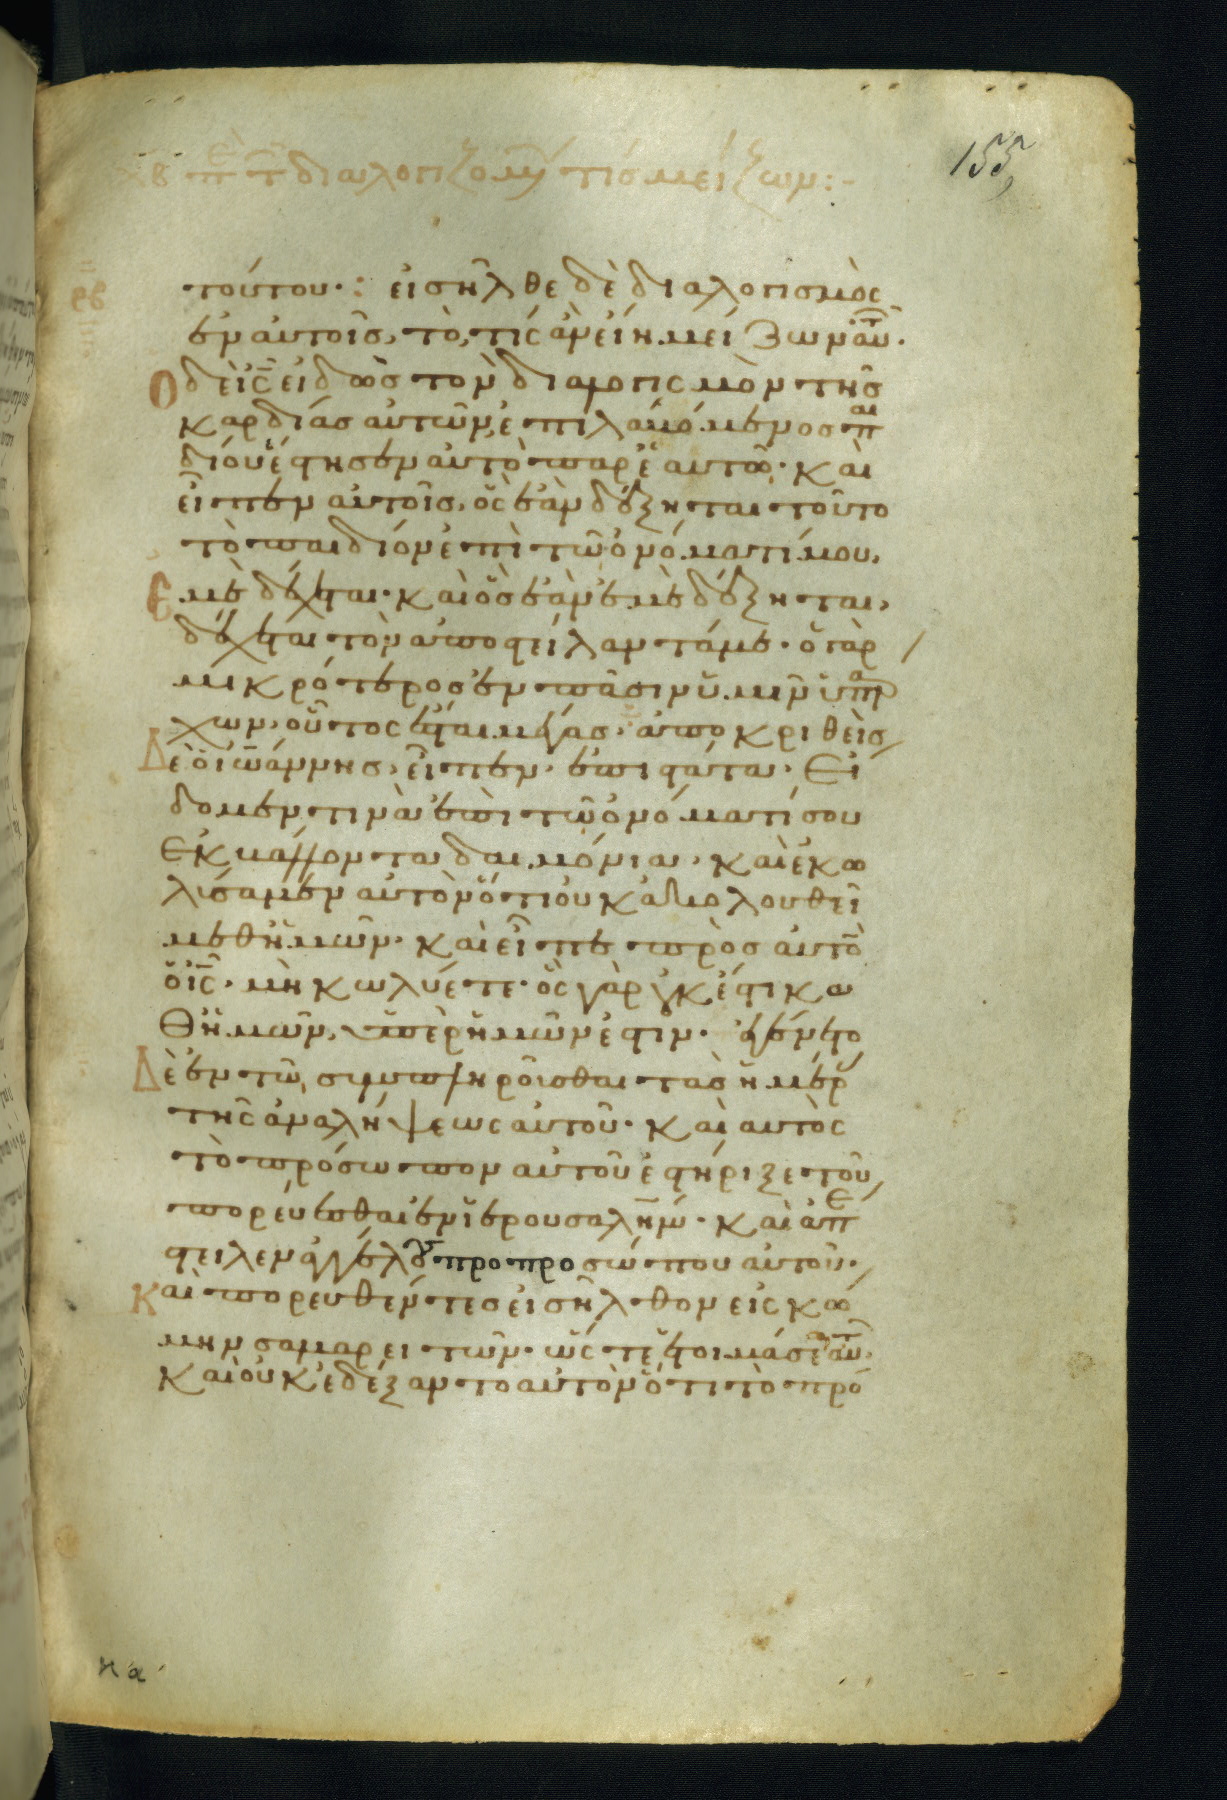 π τ διαλογιζομ τίς μείζων:-
155
τούτου·: εἰσῆλθε δὲ διαλογισμὸς
ἐν αὐτοῖς, τὸ, τίς ἂν εἴη μείζων αὐτ·
Ὁ δὲ ις̅ εἰδὼς τὸν διαλογισμὸν τῆς
καρδίας αὐτῶν, ἐπιλαβόμενος παι
δίου ἔστησεν αὐτὸ παρ' ἑαυτῷ· καὶ
εἶπεν αὐτοῖς, ὃς ἐὰν δέξηται τοῦτο
τὸ παιδίον ἐπὶ τῷ ὀνόματί μου,
Ἐμὲ δέχεται· καὶ ὃς ἐὰν ἐμὲ δέξηται,
δέχεται τὸν ἀποστείλαντά με· ὁ γὰρ
μικρότερος ἐν πᾶσιν ὑμῖν ὑπάρ
χων, οὗτος ἔσται μέγας· ἀποκριθεὶς
Δὲ ὁ ἰωάννης, εἶπεν· ἐπιστάτα· Εἴ
δομεν τινὰ ἐπὶ τῷ ὀνόματί σου
Ἐκβάλλοντα δαιμόνια· καὶ ἐκω
λύσαμεν αὐτὸν ὅτι οὐκ ἀκολουθεῖ
μεθ' ἡμῶν· καὶ εἶπε πρὸς αὐτὸ̅
ὁ ις̅· μὴ κωλύετε· ὃς γὰρ οὐκ ἔστι κα
θ' ἡμῶν, ὑπὲρ ἡμῶν ἐστιν· ἐγένετο
Δὲ ἐν τῷ συμπληροῦσθαι τὰς ἡμέρ
τῆς ἀναλήψεως αὐτοῦ· καὶ αὐτὸς
τὸ πρόσωπον αὐτοῦ ἐστήριξε τοῦ
πορεύεσθαι ἐν ἱερουσαλήμ· καὶ ἀπέ
στειλεν ἀγγέλους προ προσώπου αὐτοῦ·
Καὶ πορευθέντες εἰσῆλθον εἰς κώ
μην σαμαρειτῶν· ὥστε ἑτοιμάσαι αὐτ·
καὶ οὐκ ἐδέξαντο αὐτὸν ὅτι τὸ πρό
κα